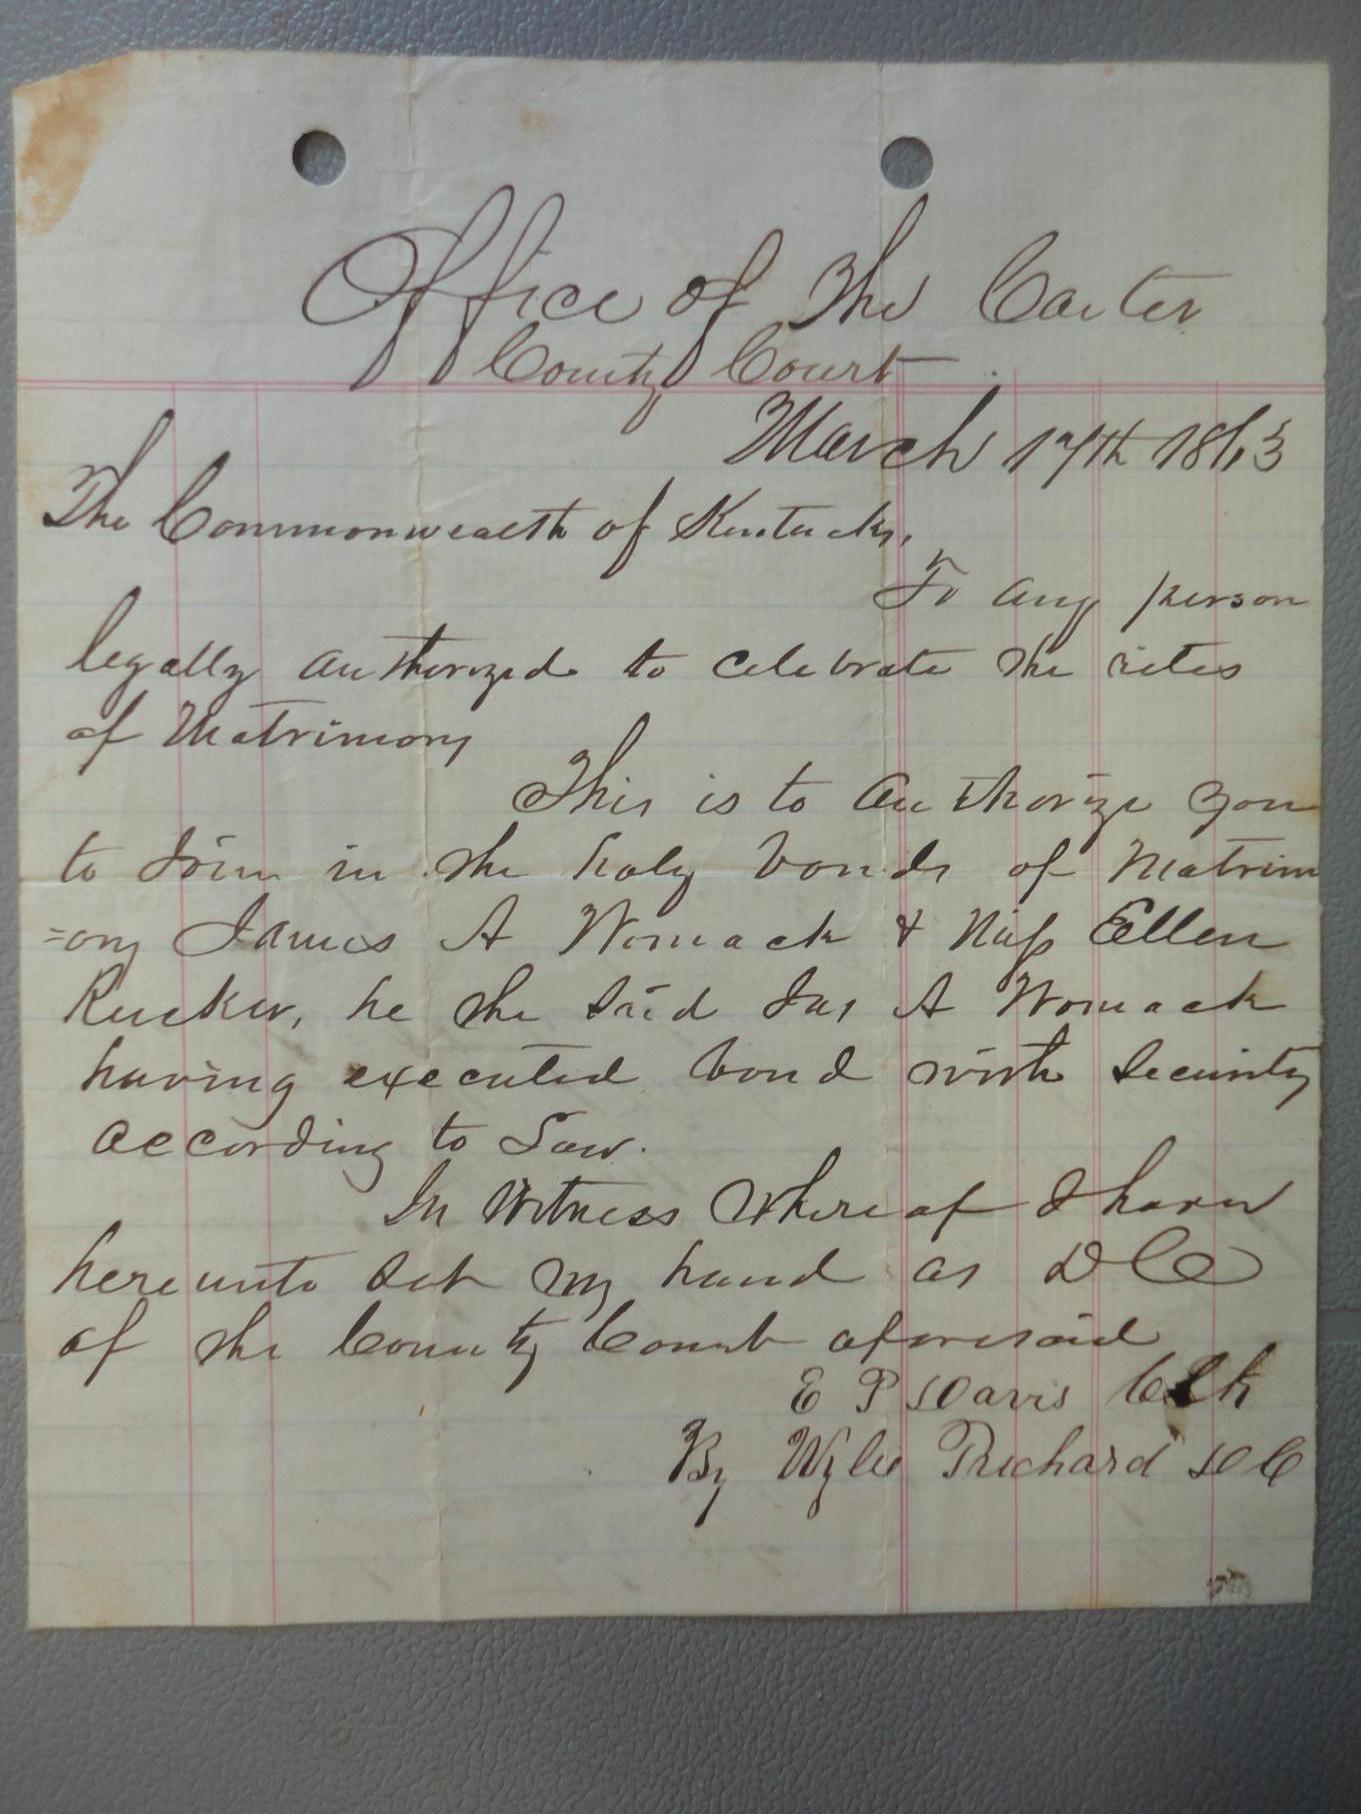 Office of The Carter
County Court
March 17th 1863
The Commonwealth of Kentucky,
To any person
legally authorized to celebrate the rites
of Matrimony
This is to authorize you
to Join in the holy bonds of Matrim
=ony James A Womack & Miss Ellen
Rucker, he the said Jas A Womack
having executed bond with Security
according to Law.
In Witness Whereof I have
hereunto Set my hand as D C
of the County Court aforesaid
E P Davis Clk
By Wylie Prichard D C